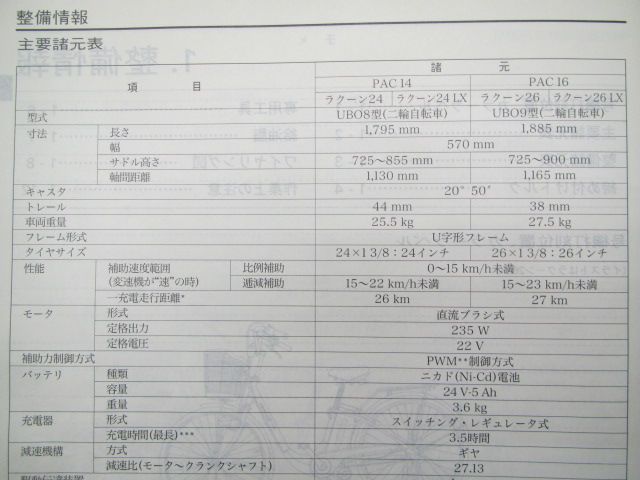 整備情報
主要諸元表
項 目 諸 元
PAC 14 PAC 16
ラクーン24 ラクーン24 LX ラクーン26 ラクーン26 LX
型式 UBO8型(二輪自転車) UBO9型(二輪自転車)
寸法 長さ 1,795 mm 1,885 mm
幅 570 mm
サドル高さ 725〜855 mm 725〜900 mm
軸間距離 1,130 mm 1,165 mm
キャスタ 20°50′
トレール 44 mm 38 mm
車両重量 25.5 kg 27.5 kg
フレーム形式 U字形フレーム
タイヤサイズ 24×1 3/8：24インチ 26×1 3/8：26インチ
性能 補助速度範囲 (変速機が“速”の時) 比例補助 0〜15 km/h未満
逓減補助 15〜22 km/h未満 15〜23 km/h未満
一充電走行距離* 26 km 27 km
モータ 形式 直流ブラシ式
定格出力 235 W
定格電圧 22 V
補助力制御方式 PWM**制御方式
バッテリ 種類 ニカド(Ni-Cd)電池
容量 24 V-5 Ah
重量 3.6 kg
充電器 形式 スイッチング・レギュレータ式
充電時間(最長)*** 3.5時間
減速機構 方式 ギヤ
減速比(モータ〜クランクシャフト) 27.13